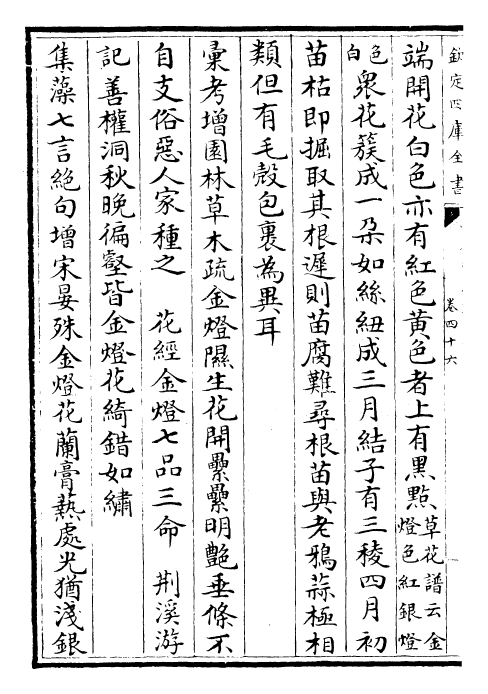 欽定四庫全書
卷四十六
端開花白色亦有紅色黃色者上有黑㸃草花譜云金燈色紅銀燈
色白衆花簇成一朶如絲紐成三月結子有三稜四月初
苗枯即掘取其根遲則苗腐難尋根苗與老鴉蒜極相
類但有毛殼包裹為異耳
彚考增園林草木疏金燈隰生花開纍纍明艶垂條不
自支俗惡人家種之 花經金燈七品三命 荆溪游
記善權洞秋晚徧壑皆金燈花綺錯如繡
集藻七言絶句增宋晏殊金燈花蘭膏爇處光猶淺銀